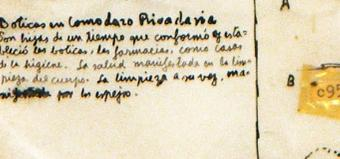 Boticas en Comodoro Rivadavia
Son hijas de un tiempo que conformó y esta-
bleció las boticas, las farmacias, como casas
de la higiene. La salud manifestada en la lim-
pieza del cuerpo. La limpieza a su vez, ma-
por los espejos.
A
B
c95